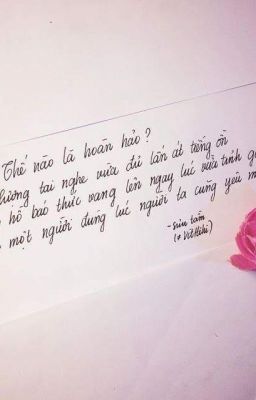 Thế nào là hoàn hảo?
lượng tai nghe vừa đủ lấn át tiếng ồn
hồ báo thức vang lên ngay lúc vừa tỉnh
một người đúng lúc người ta cũng yêu
- Sưu tầm